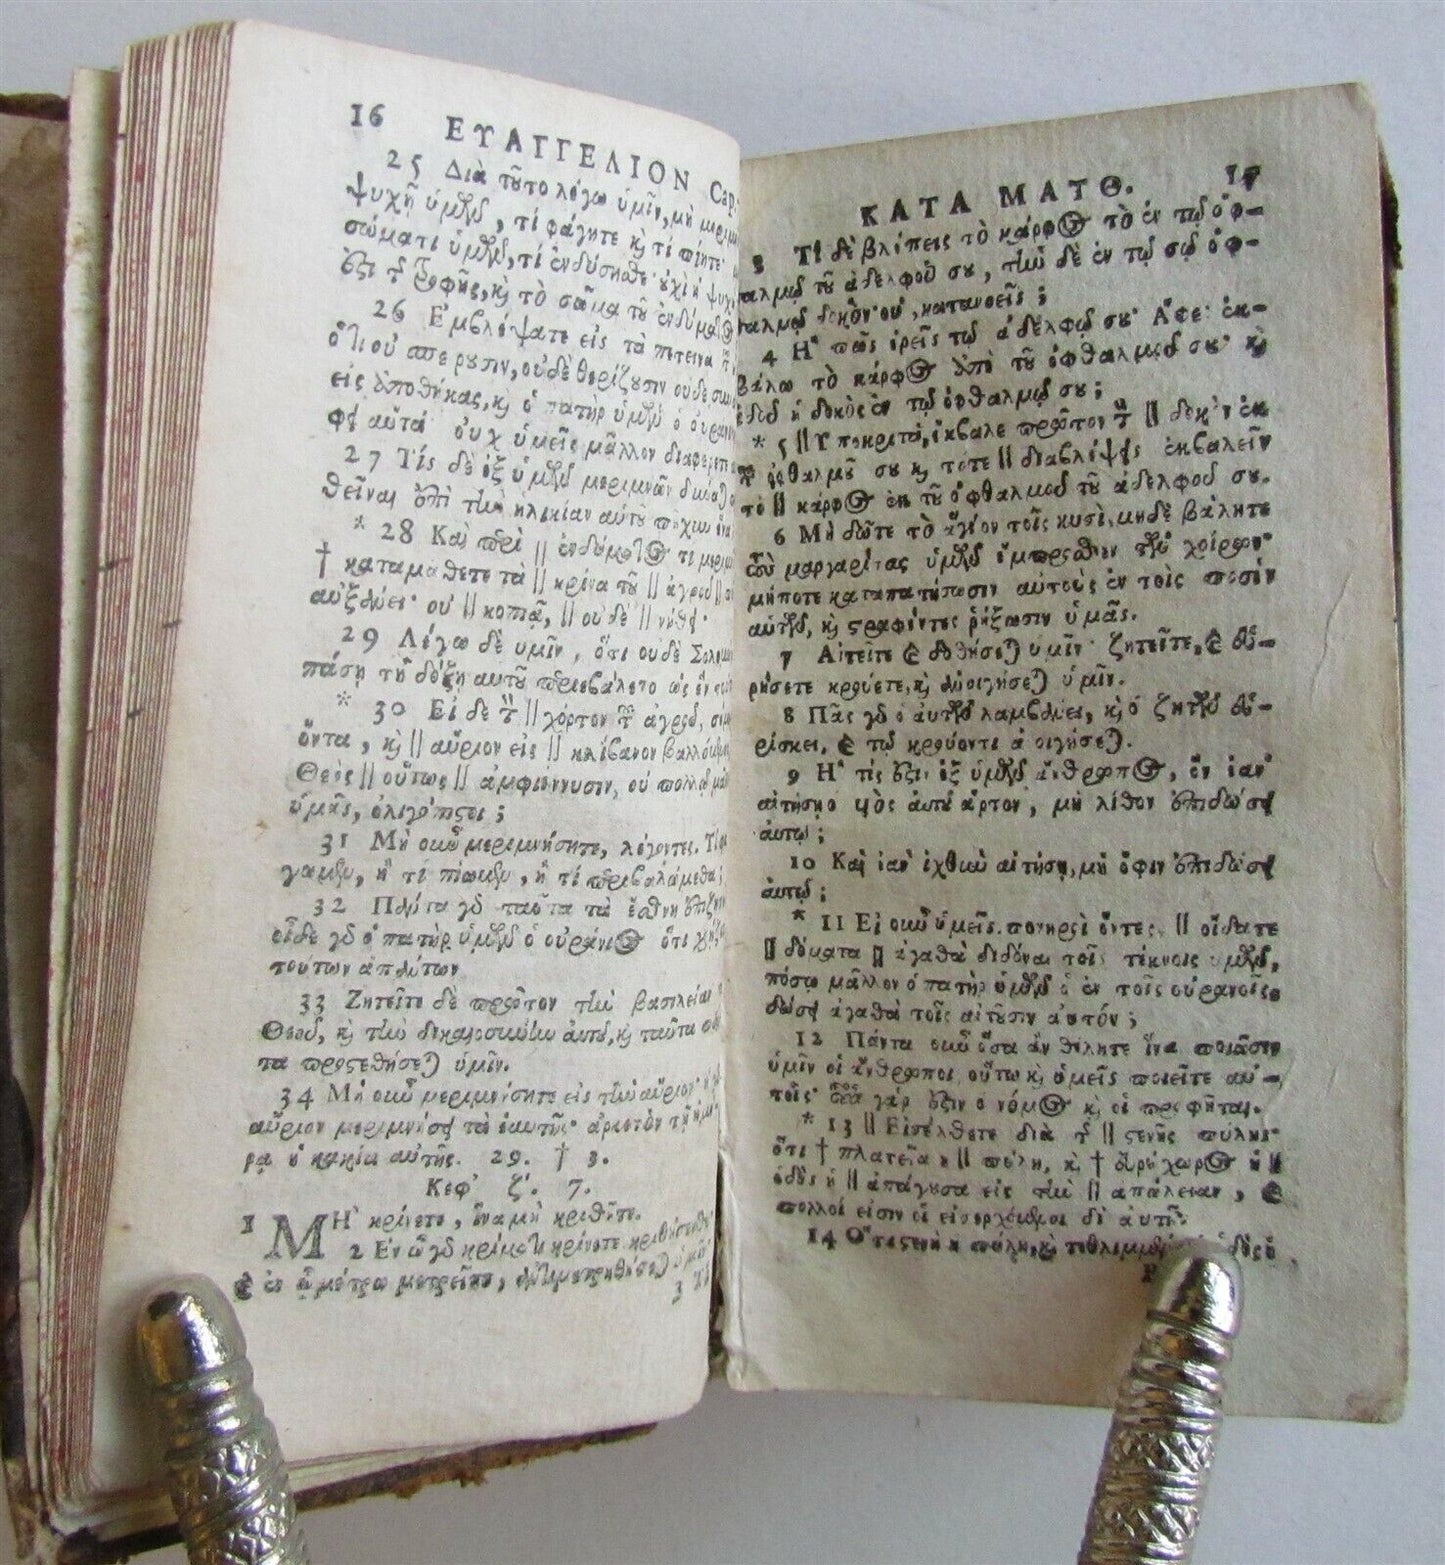 16 ΕΥΑΓΓΕΛΙΟΝ Cap.
25 Διὰ τοῦτο λέγω ὑμῖν, μὴ
ψυχῇ ὑμῶν, τί φάγητε καὶ τί πίητε·
σώματι ὑμῶν, τί ἐνδύσησθε· οὐχὶ ἡ ψυχὴ
ἐστι τῆς τροφῆς, καὶ τὸ σῶμα τοῦ ἐνδύματος
26 Ἐμβλέψατε εἰς τὰ πετεινὰ
ὅτι οὐ σπείρουσιν, οὐδὲ θερίζουσιν οὐδὲ
εἰς ἀποθήκας, καὶ ὁ πατὴρ ὑμῶν ὁ
αὐτά· οὐχ ὑμεῖς μᾶλλον διαφέρετε
27 Τίς δὲ ἐξ ὑμῶν μεριμνῶν
θεῖναι ἐπὶ τὴν ἡλικίαν αὐτοῦ πῆχυν
* 28 Καὶ περὶ || ἐνδύματος τί
† καταμάθετε τὰ || κρίνα τοῦ || ἀγροῦ ||
αὐξάνει· οὐ || κοπιᾷ, || οὐδὲ || νήθει·
29 Λέγω δὲ ὑμῖν, ὅτι οὐδὲ
πάσῃ τῇ δόξῃ αὐτοῦ περιεβάλετο ὡς ἓν
* 30 Εἰ δὲ τὸν || χόρτον τοῦ ἀγροῦ,
ὄντα, καὶ || αὔριον εἰς || κλίβανον
Θεὸς || οὕτως || ἀμφιέννυσιν, οὐ πολλῷ
ὑμᾶς, ὀλιγόπιστοι;
31 Μὴ οὖν μεριμνήσητε, λέγοντες, Τί
γωμεν, ἢ τί πίωμεν, ἢ τί περιβαλώμεθα;
32 Πάντα γὰρ ταῦτα τὰ ἔθνη
οἶδε γὰρ ὁ πατὴρ ὑμῶν ὁ οὐράνιος ὅτι
τούτων ἁπάντων
33 Ζητεῖτε δὲ πρῶτον τὴν βασιλείαν
Θεοῦ, καὶ τὴν δικαιοσύνην αὐτοῦ, καὶ ταῦτα
τα προςτεθήσεται ὑμῖν.
34 Μὴ οὖν μεριμνήσητε εἰς τὴν αὔριον·
αὔριον μεριμνήσει τὰ ἑαυτῆς· ἀρκετὸν τῇ
ρᾳ ἡ κακία αὐτῆς. 29. † 3.
Κεφ. ζʹ. 7.
1 ΜΗ κρίνετε, ἵνα μὴ κριθῆτε.
2 Ἐν ᾧ γὰρ κρίματι κρίνετε κριθήσεσθε·
καὶ ἐν ᾧ μέτρῳ μετρεῖτε, ἀντιμετρηθήσεται ὑμῖν
3 Τί
ΚΑΤΑ ΜΑΤΘ. 17
3 Τί δὲ βλέπεις τὸ κάρφος τὸ ἐν τῷ ὀφ-
θαλμῷ τοῦ ἀδελφοῦ σου, τὴν δὲ ἐν τῷ σῷ ὀφ-
θαλμῷ δοκὸν οὐ κατανοεῖς;
4 Ἢ πῶς ἐρεῖς τῷ ἀδελφῷ σου· Ἄφες ἐκ-
βάλω τὸ κάρφος ἀπὸ τοῦ ὀφθαλμοῦ σου· καὶ
ἰδοὺ ἡ δοκὸς ἐν τῷ ὀφθαλμῷ σου;
* 5 || Ὑποκριτά, ἔκβαλε πρῶτον τὴν || δοκὸν ἐκ
τοῦ ὀφθαλμοῦ σου καὶ τότε || διαβλέψεις ἐκβαλεῖν
τὸ || κάρφος ἐκ τοῦ ὀφθαλμοῦ τοῦ ἀδελφοῦ σου.
6 Μὴ δῶτε τὸ ἅγιον τοῖς κυσὶ, μηδὲ βάλητε
τοὺς μαργαρίτας ὑμῶν ἔμπροσθεν τῶν χοίρων·
μήποτε καταπατήσωσιν αὐτοὺς ἐν τοῖς ποσὶν
αὐτῶν, καὶ στραφέντες ῥήξωσιν ὑμᾶς.
7 Αἰτεῖτε καὶ δοθήσεται ὑμῖν· ζητεῖτε, καὶ εὑ-
ρήσετε κρούετε, καὶ ἀνοιγήσεται ὑμῖν.
8 Πᾶς γὰρ ὁ αἰτῶν λαμβάνει, καὶ ὁ ζητῶν εὑ-
ρίσκει, καὶ τῷ κρούοντι ἀνοιγήσεται.
9 Ἢ τίς ἐστιν ἐξ ὑμῶν ἄνθρωπος, ὃν ἐὰν
αἰτήσῃ ὁ υἱὸς αὐτοῦ ἄρτον, μὴ λίθον ἐπιδώσει
αὐτῷ;
10 Καὶ ἐὰν ἰχθὺν αἰτήσῃ, μὴ ὄφιν ἐπιδώσει
αὐτῷ;
* 11 Εἰ οὖν ὑμεῖς πονηροὶ ὄντες, || οἴδατε
|| δόματα || ἀγαθὰ διδόναι τοῖς τέκνοις ὑμῶν,
πόσῳ μᾶλλον ὁ πατὴρ ὑμῶν ὁ ἐν τοῖς οὐρανοῖς
δώσει ἀγαθὰ τοῖς αἰτοῦσιν αὐτόν;
12 Πάντα οὖν ὅσα ἂν θέλητε ἵνα ποιῶσιν
ὑμῖν οἱ ἄνθρωποι, οὕτω καὶ ὑμεῖς ποιεῖτε αὐ-
τοῖς· οὗτος γάρ ἐστιν ὁ νόμος καὶ οἱ προφῆται.
* 13 || Εἰσέλθετε διὰ τῆς || στενῆς πύλης·
ὅτι † πλατεῖα ἡ || πύλη, καὶ † εὐρύχωρος ἡ ||
ὁδὸς ἡ || ἀπάγουσα εἰς τὴν || ἀπώλειαν, καὶ
πολλοί εἰσιν οἱ εἰσερχόμενοι δι' αὐτῆς·
14 Ὅτι στενὴ ἡ πύλη, καὶ τεθλιμμένη ἡ ὁδὸς ἡ